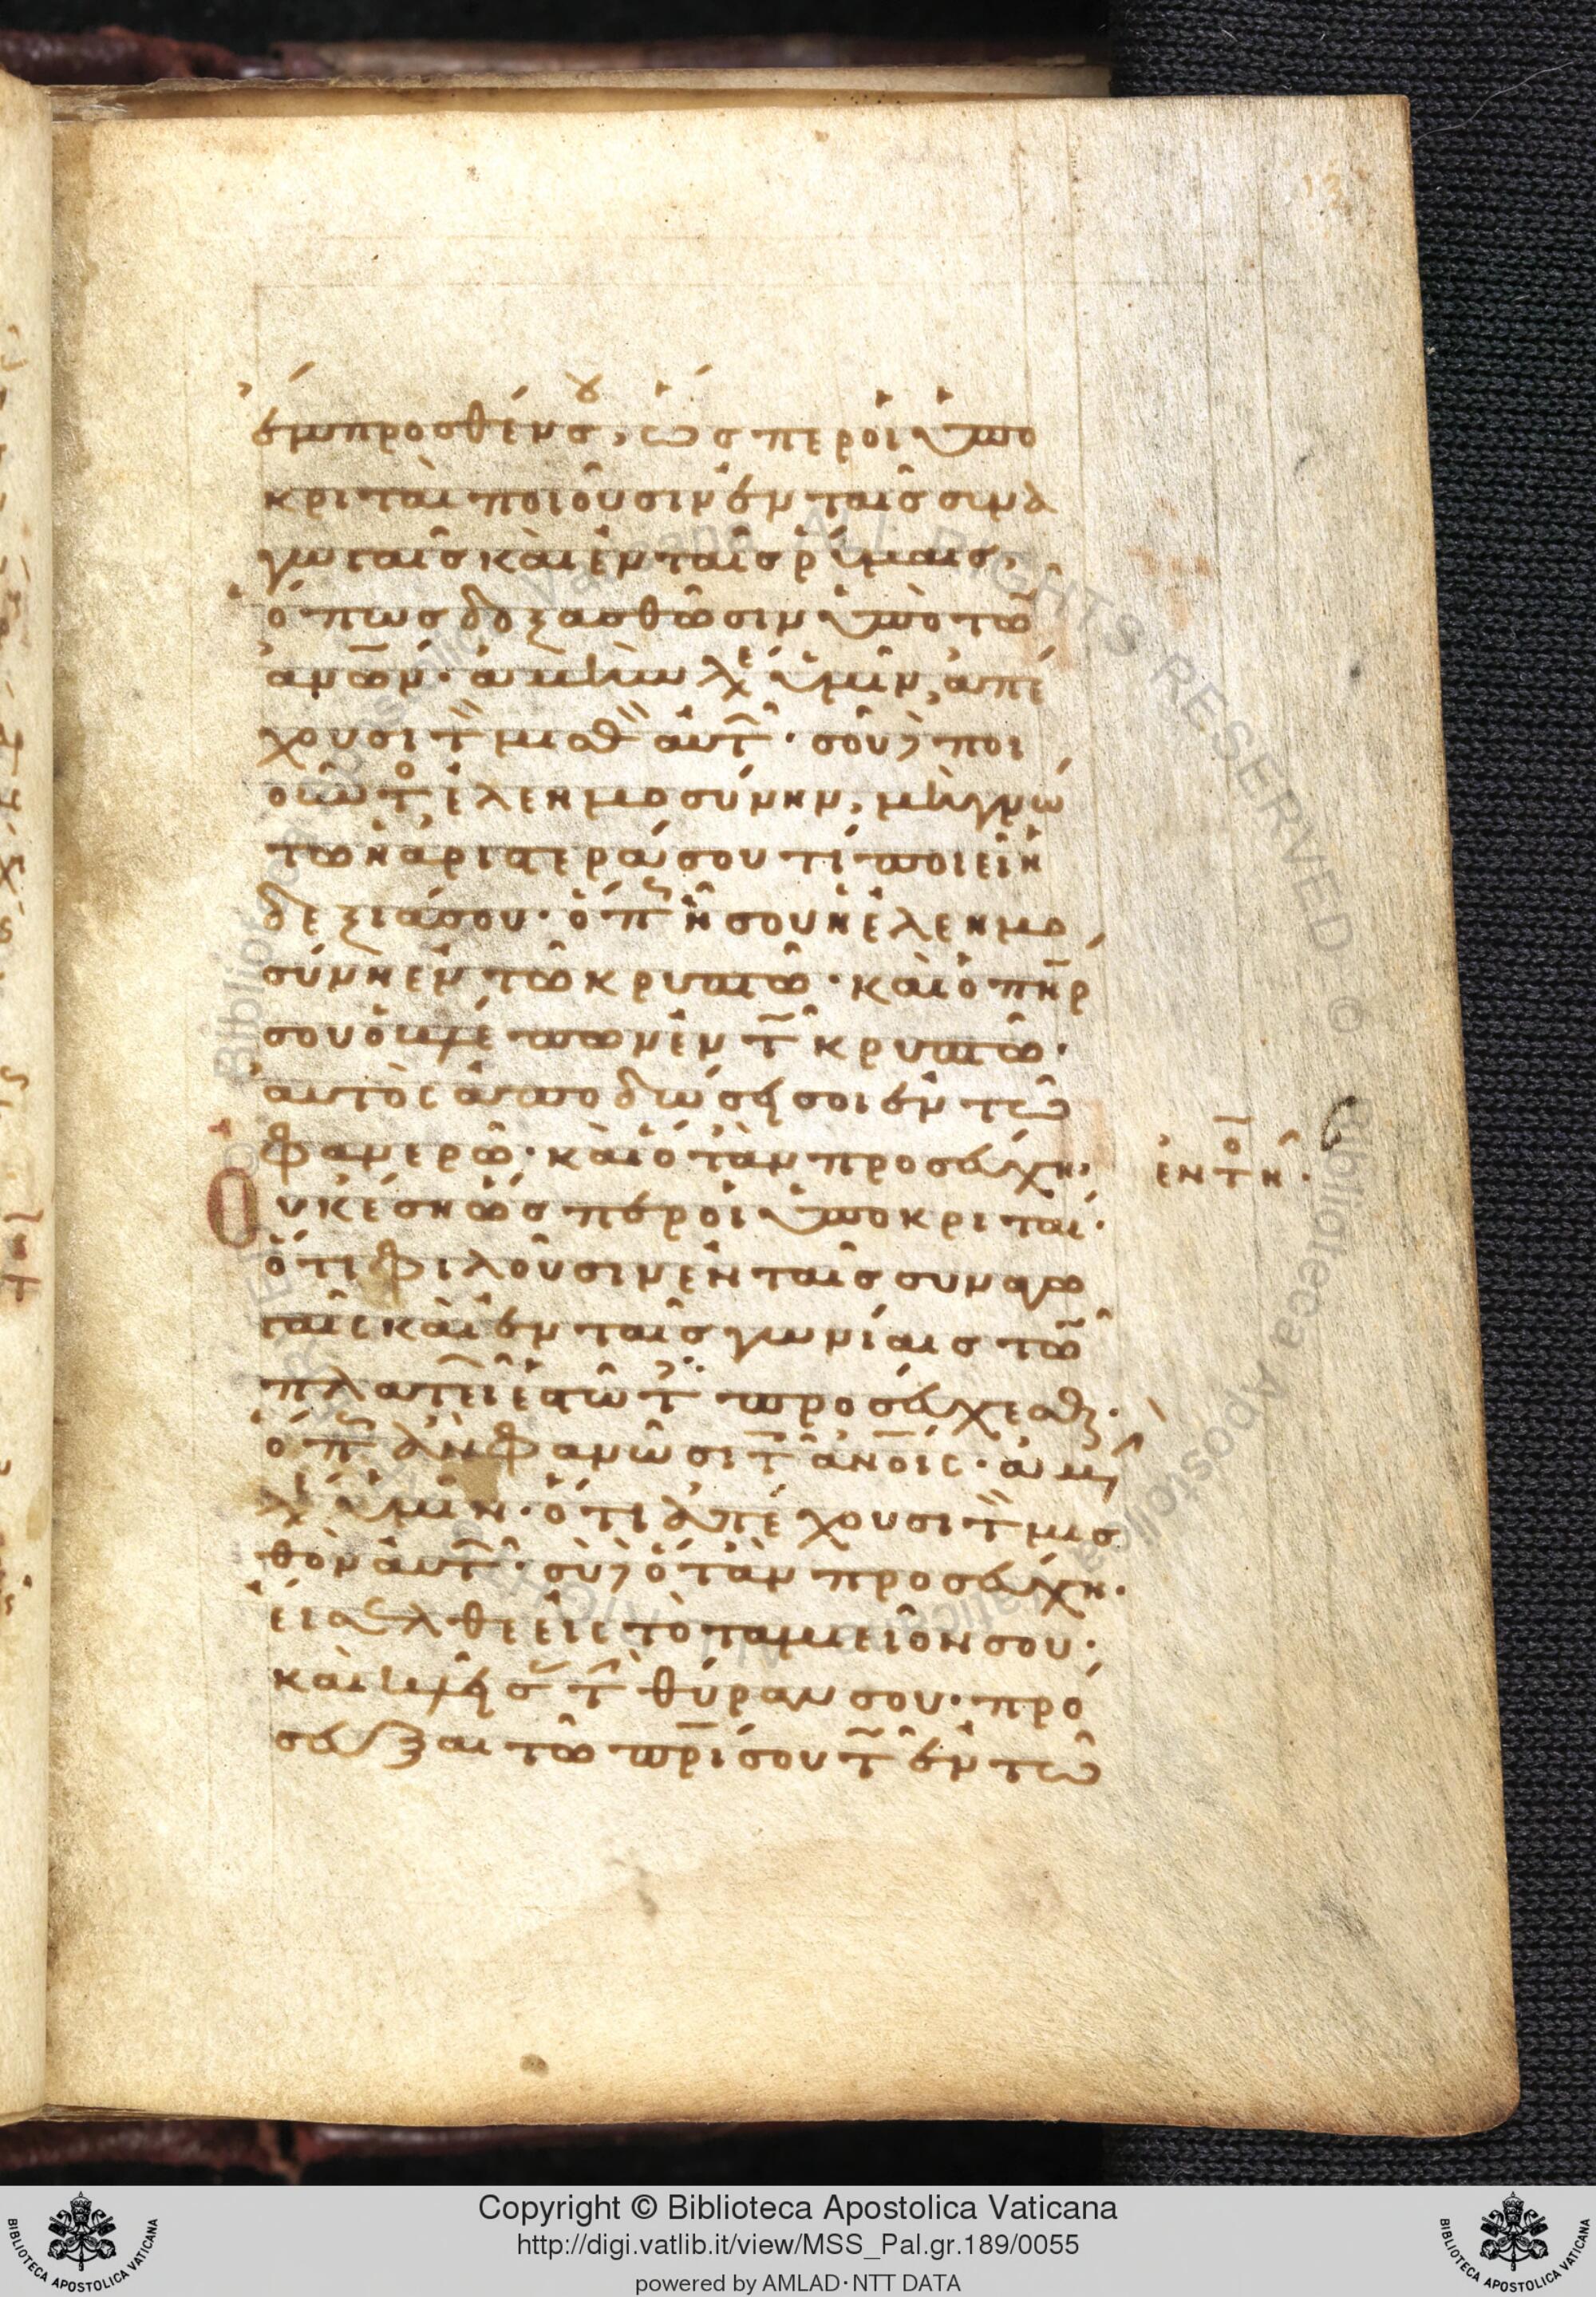 13
ἔμπροσθέν σου, ὥσπερ οἱ ὑπο
κριταὶ ποιοῦσιν ἐν ταῖς συνα
γωγαῖς καὶ ἐν ταῖς ῥύμαις,
ὅπως δοξασθῶσιν ὑπὸ τῶν
ἀνων· ἀμὴν λέ ὑμῖν, ἀπέ
χουσι τ μισθ αὐτ· σοῦ δὲ ποι
οῦντο ἐλεημοσύνην, μὴ γνώ
τω ἡ ἀριστερά σου τί ποιεῖ ἡ
δεξιά σου· ὅπ ἦ σου ἡ ἐλεημο
σύνη ἐν τῶ κρυπτῶ· καὶ ὁ πηρ
σου ὁ βλέπων ἐν τ κρυπτῶ·
αὐτὸς ἀποδώσει σοι ἐν τῶ
φανερῶ· καὶ ὅταν προσεύχη·
ἐν τ η·
Οὐκ ἔση ὥσπερ οἱ ὑποκριταί·
ὅτι φιλοῦσιν ἐν ταῖς συναγω
γαῖς καὶ ἐν ταῖς γωνίαις τῶν
πλατει ἑστῶτ προσεύχεσθαι·
ὅπ ἂν φανῶσι τ ἀνοις· ἀμὴν
λέ ὑμῖν· ὅτι ἀπέχουσι τ μισ
θὸν αὐτ· σὺ δὲ ὅταν προσεύχη·
εἴσελθε εἰς τὸ ταμιεῖον σου·
καὶ κλείσ τ θύραν σου· πρό
σευξαι τῶ πρι σου τ ἐν τῶ
Copyright © Biblioteca Apostolica Vaticana
http://digi.vatlib.it/view/MSS_Pal.gr.189/0055
powered by AMLAD·NTT DATA
BIBLIOTECA APOSTOLICA VATICANA
BIBLIOTECA APOSTOLICA VATICANA